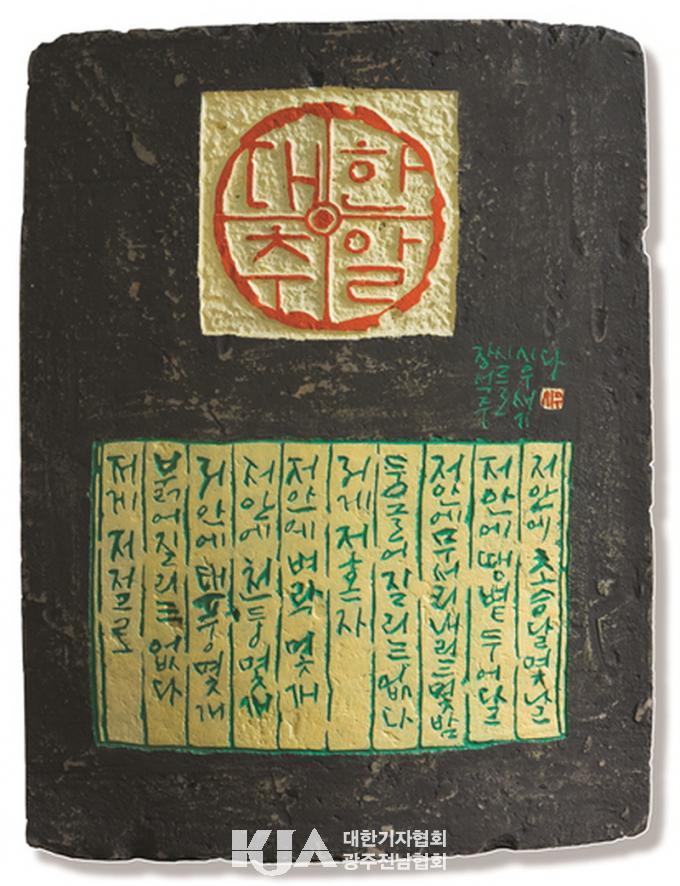 대추
한알
장석주
시를
시우새기
다
저게 저절로
붉어질리는 없다
저안에 태풍 몇개
저안에 천둥 몇개
저안에 벼락 몇개
저게 저혼자
둥글어질리는 없다
저안에 무서리 내리는 몇밤
저안에 땡볕 두어달
저안에 초승달 몇날
KJA 대한기자협회
광주전남협회